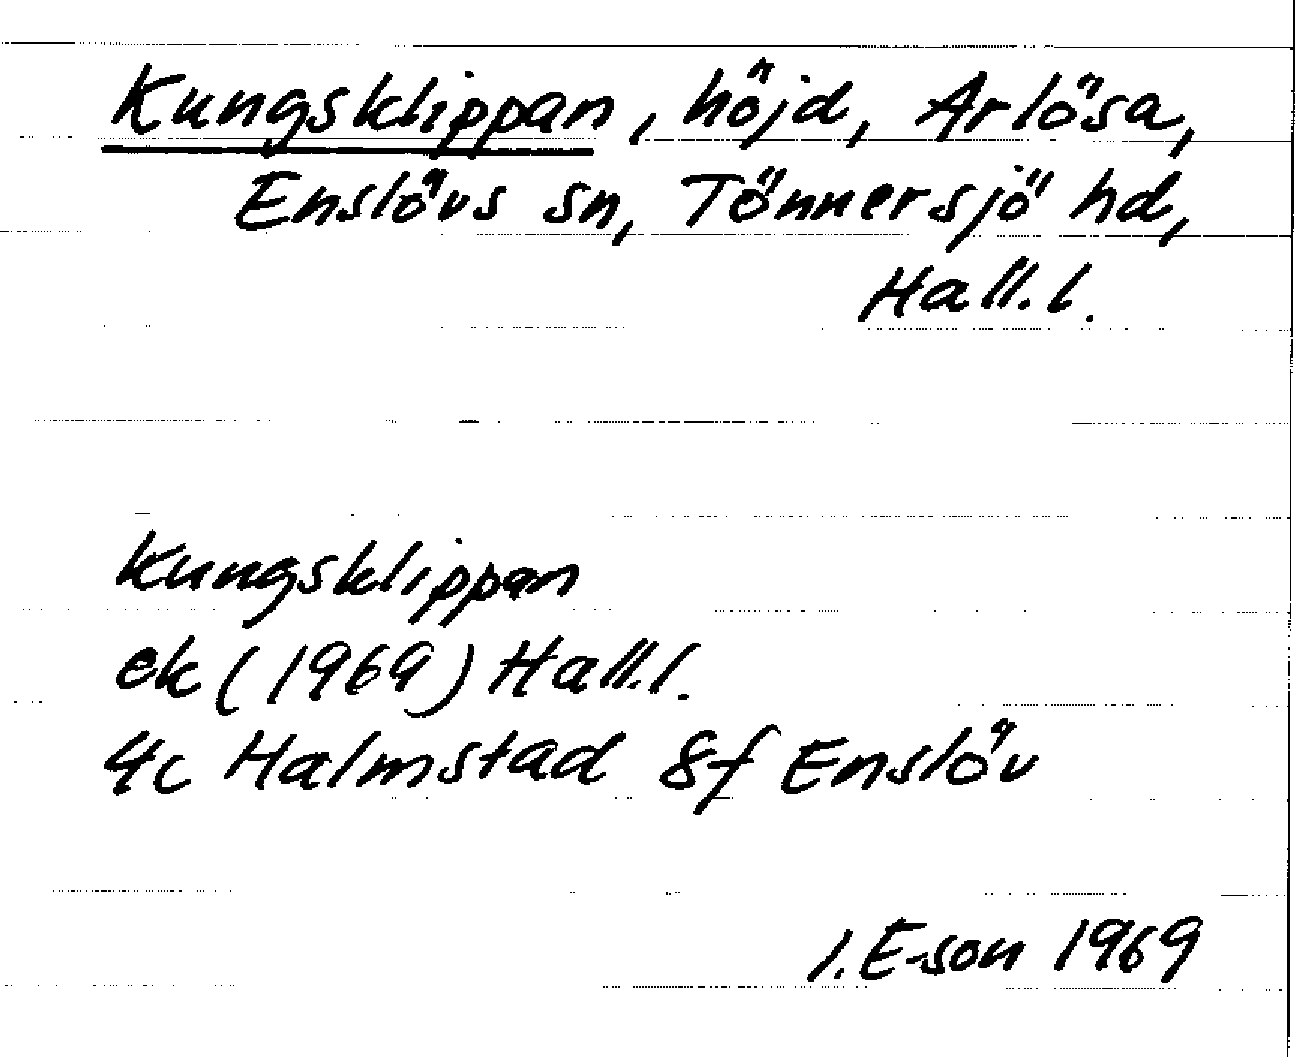 Kungsklippan, höjd, Arlösa,
Enslövs sn, Tönnersjö hd,
Hall.l.
Kungsklippan
ek (1969) Hall.l.
4c Halmstad 8f Enslöv
I. E-son 1969